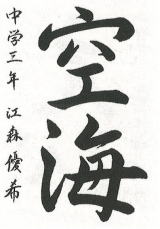 空海
中学三年 江森優希